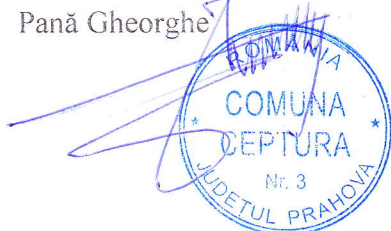 Pană Gheorghe
ROMÂNIA
COMUNA
CEPTURA
Nr. 3
JUDEȚUL PRAHOVA